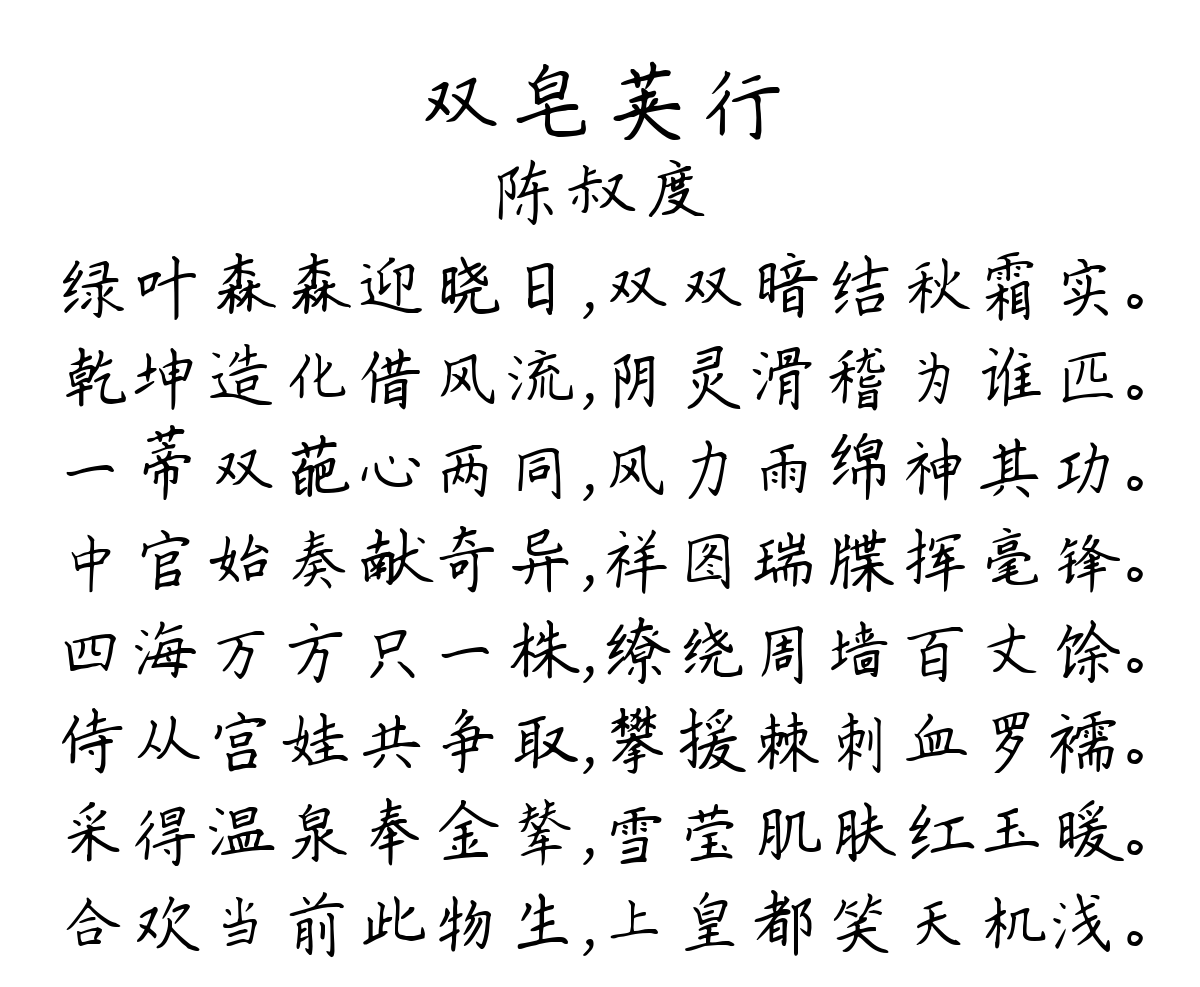 双皂荚行
陈叔度
绿叶森森迎晓日,双双暗结秋霜实。
乾坤造化借风流,阴灵滑稽为谁匹。
一蒂双葩心两同,风力雨绵神其功。
中官始奏献奇异,祥图瑞牒挥毫锋。
四海万方只一株,缭绕周墙百丈馀。
侍从宫娃共争取,攀援棘刺血罗襦。
采得温泉奉金辇,雪莹肌肤红玉暖。
合欢当前此物生,上皇都笑天机浅。